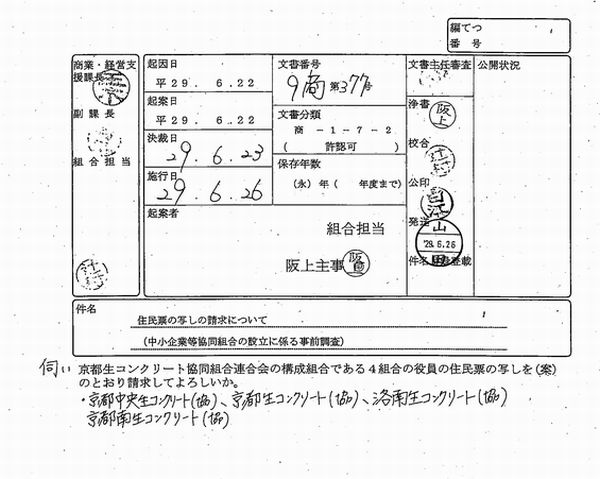 編てつ
番号
商業・経営支
援課長
副課長
組合担当
起因日
平29.6.22
起案日
平29.6.22
決裁日
29.6.23
施行日
29.6.26
文書番号
9商第377号
文書分類
商－1－7－2
(許認可)
保存年数
(永)年(年度まで)
起案者
組合担当
阪上主事
文書主任審査
浄書
阪上
校合
公印
発送
山
'29.6.26
田
件名
登載
公開状況
件名
住民票の写しの請求について
(中小企業等協同組合の設立に係る事前調査)
伺い 京都生コンクリート協同組合連合会の構成組合である4組合の役員の住民票の写しを(案)
のとおり請求してよろしいか。
・京都中央生コンクリート(協)、京都生コンクリート(協)、洛南生コンクリート(協)
京都南生コンクリート(協)